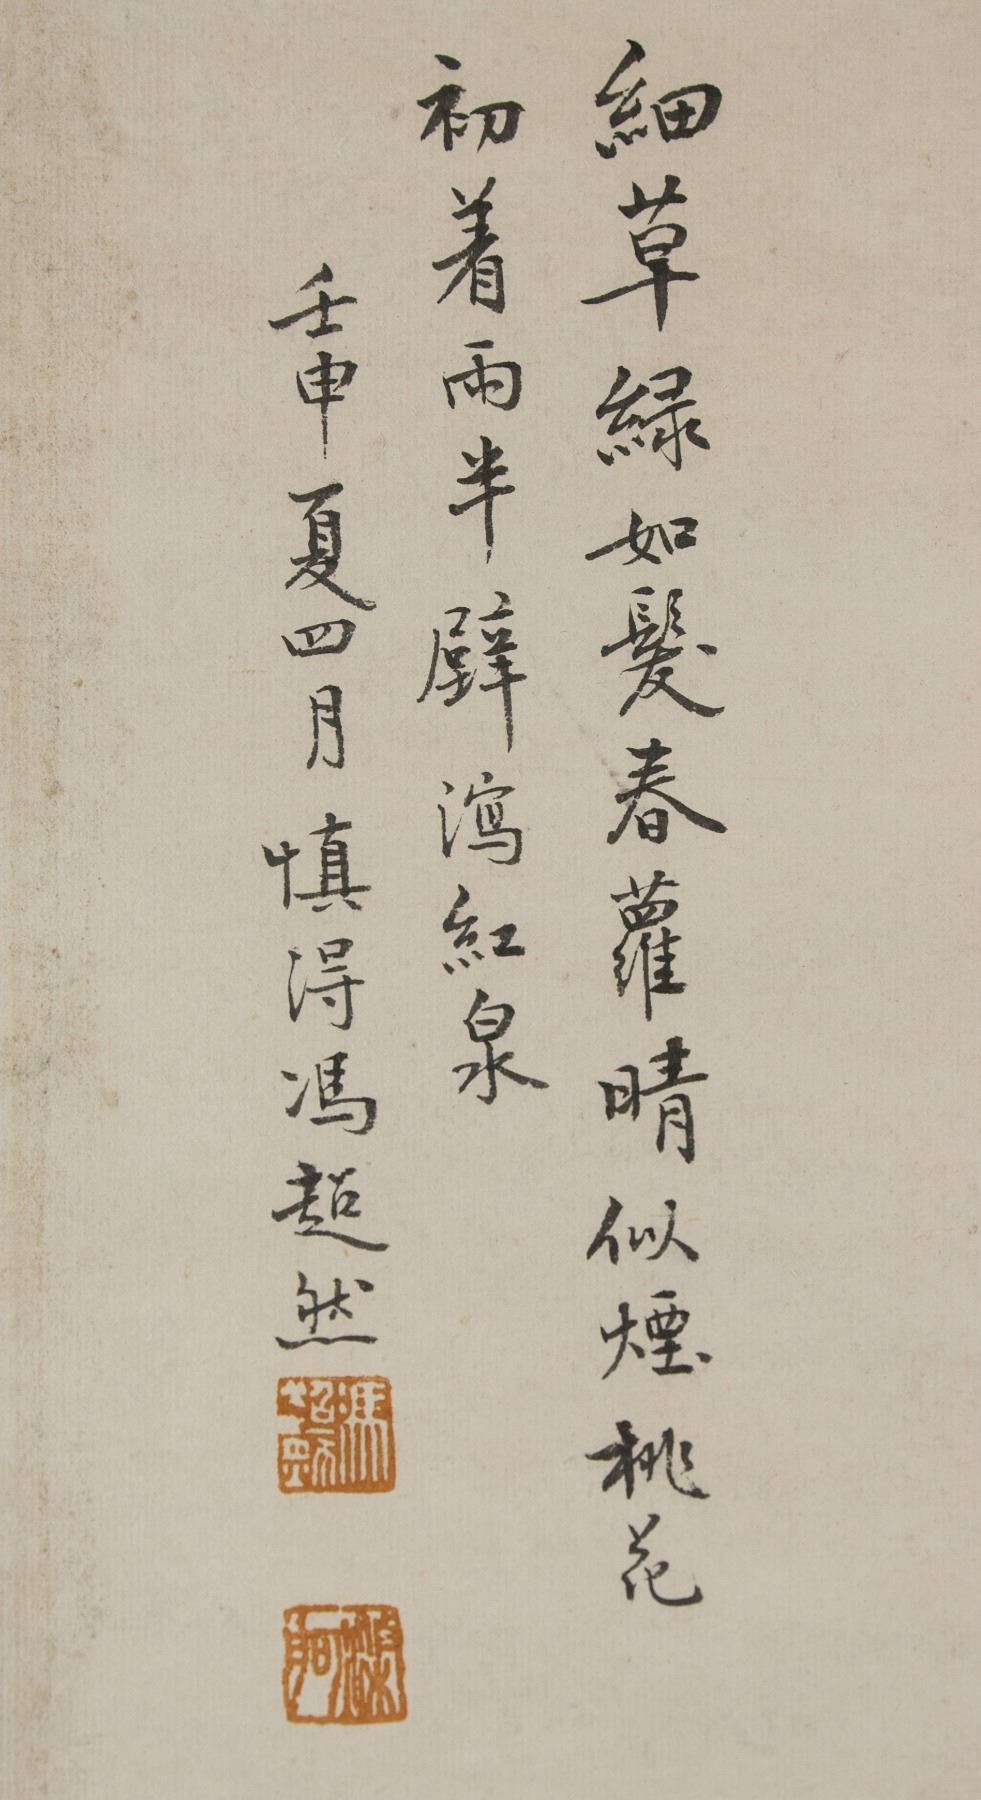 細草綠如髮春蘿晴似煙桃花
初着雨半壁瀉紅泉
壬申夏四月慎得馮超然
馮超然
滌舸